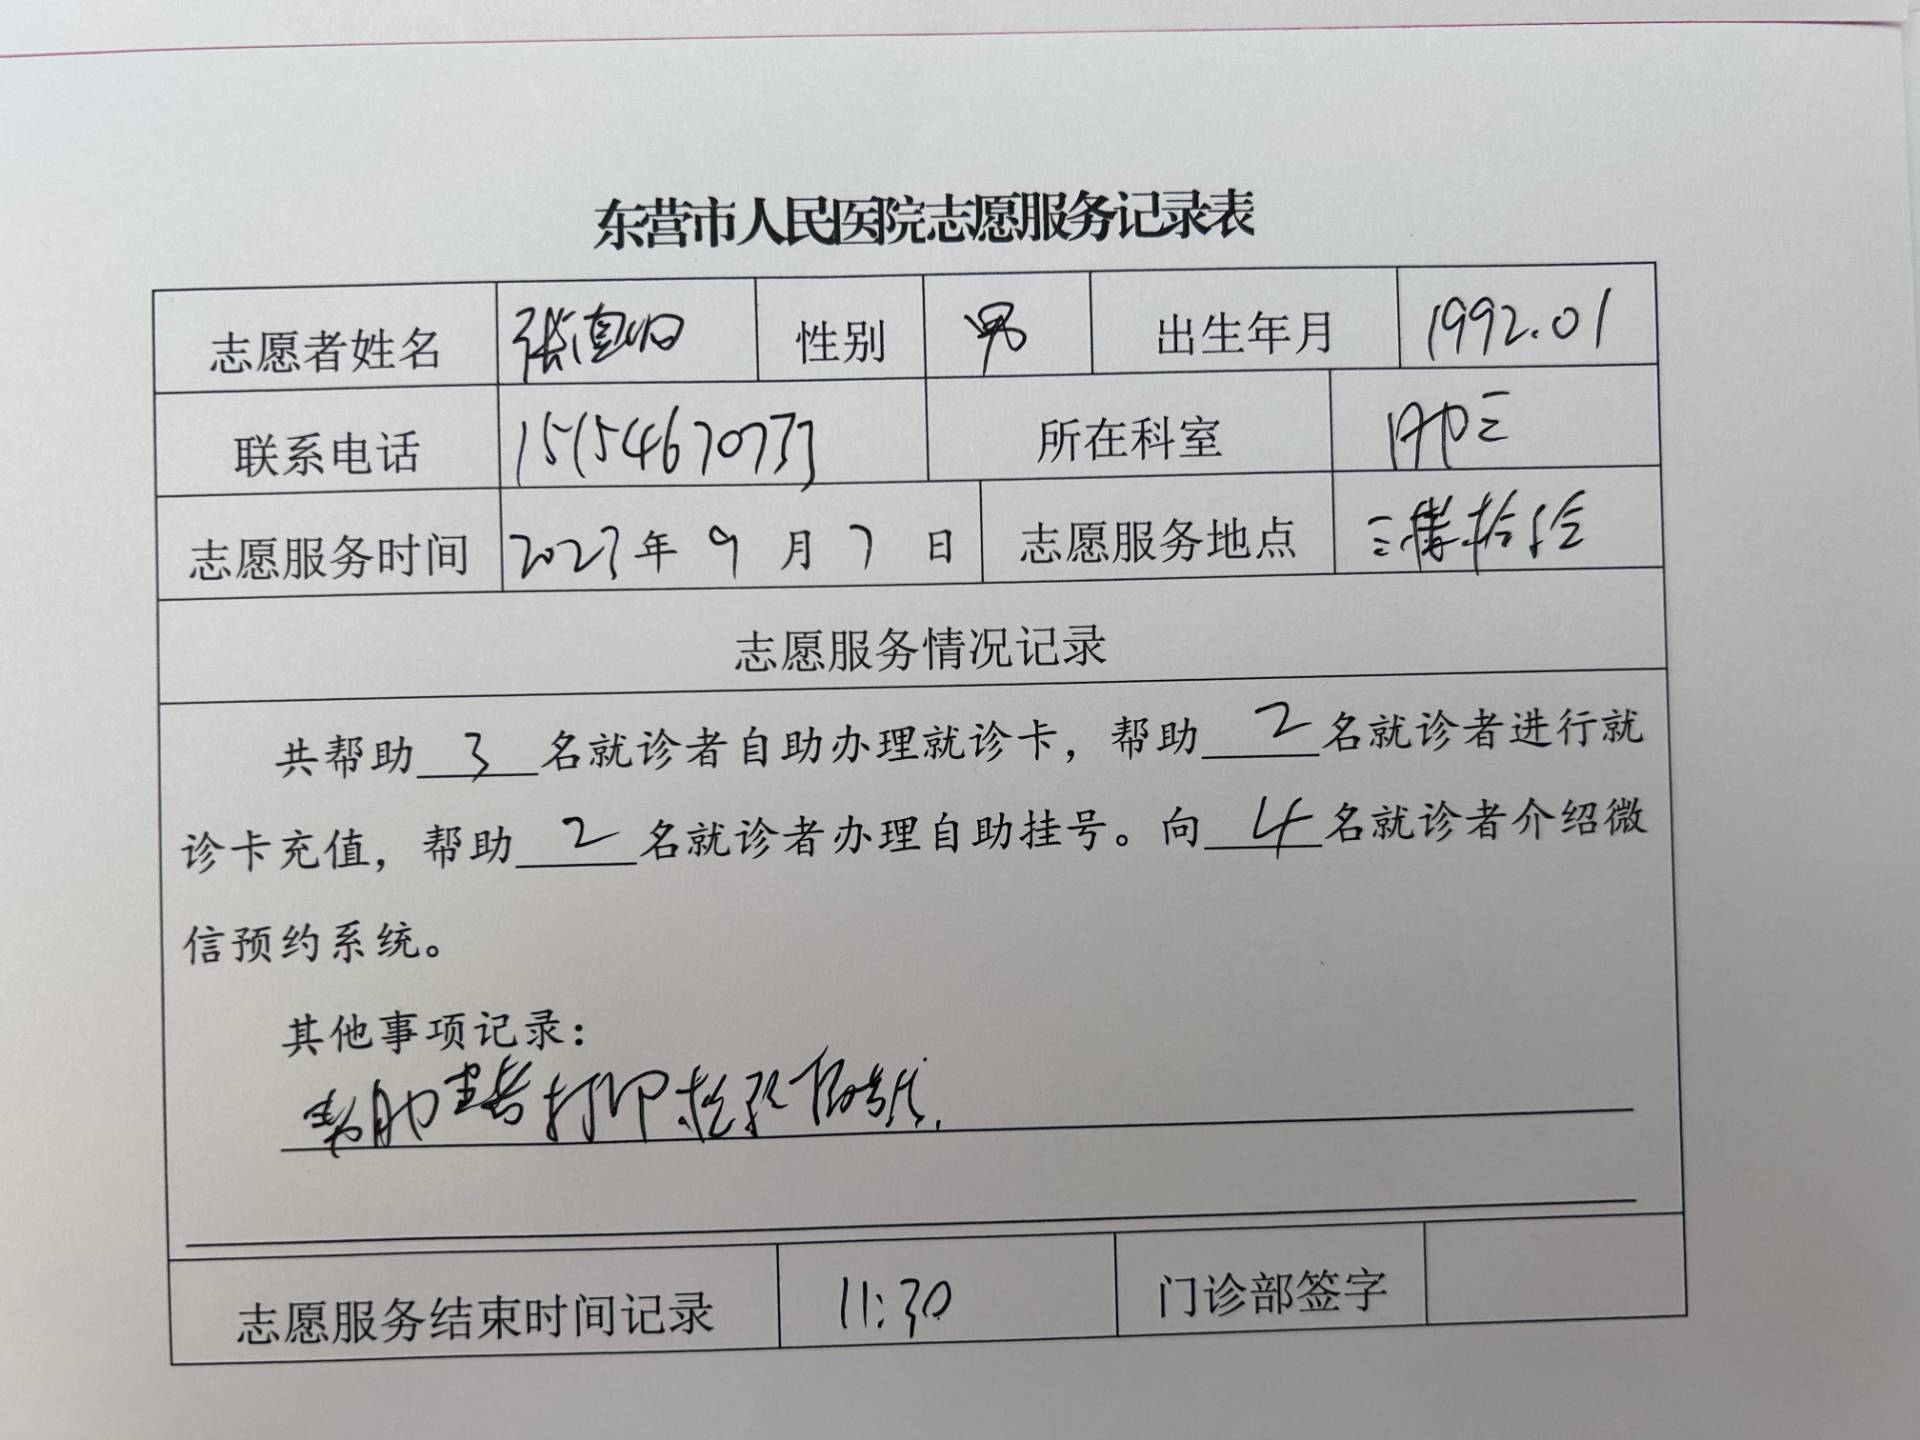 东营市人民医院志愿服务记录表
志愿者姓名 张 性别 男 出生年月 1992.01
联系电话 15154670733 所在科室 三
志愿服务时间 2023年 9 月 7 日 志愿服务地点 三楼
志愿服务情况记录
共帮助 3 名就诊者自助办理就诊卡，帮助 2 名就诊者进行就
诊卡充值，帮助 2 名就诊者办理自助挂号。向 4 名就诊者介绍微
信预约系统。
其他事项记录：
帮助患者打印检验报告.
志愿服务结束时间记录 11:30 门诊部签字